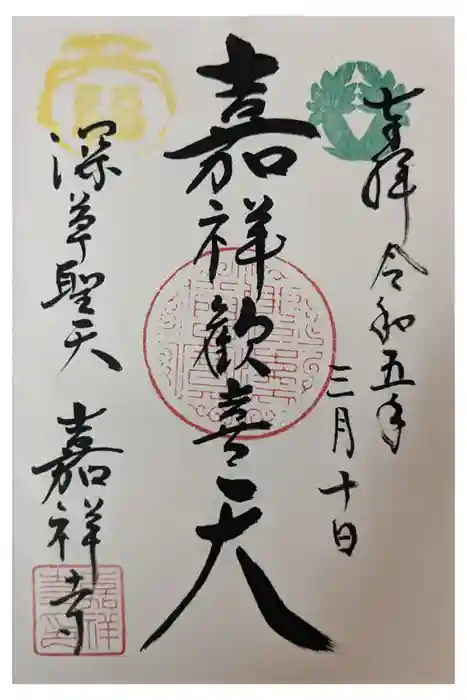 奉拝 令和五年
三月十日
嘉祥歓喜天
深草聖天 嘉祥寺